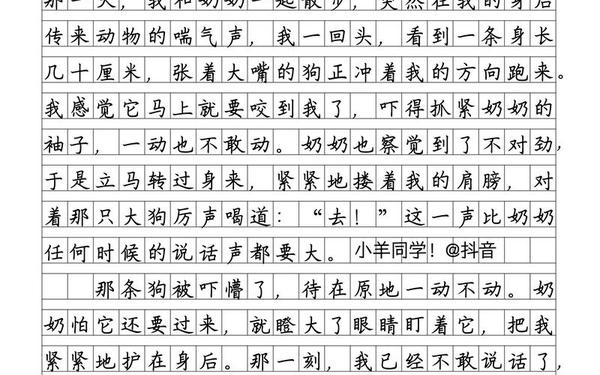 那一天，我和奶奶一起散步，突然在我的身后
传来动物的喘气声，我一回头，看到一条身长
几十厘米，张着大嘴的狗正冲着我的方向跑来。
我感觉它马上就要咬到我了，吓得抓紧奶奶的
袖子，一动也不敢动。奶奶也察觉到了不对劲，
于是立马转过身来，紧紧地搂着我的肩膀，对
着那只大狗厉声喝道：“去！”这一声比奶奶
任何时候的说话声都要大。 小羊同学！@抖音
那条狗被吓懵了，待在原地一动不动。奶
奶怕它还要过来，就瞪大了眼睛盯着它，把我
紧紧地护在身后。那一刻，我已经不敢说话了，